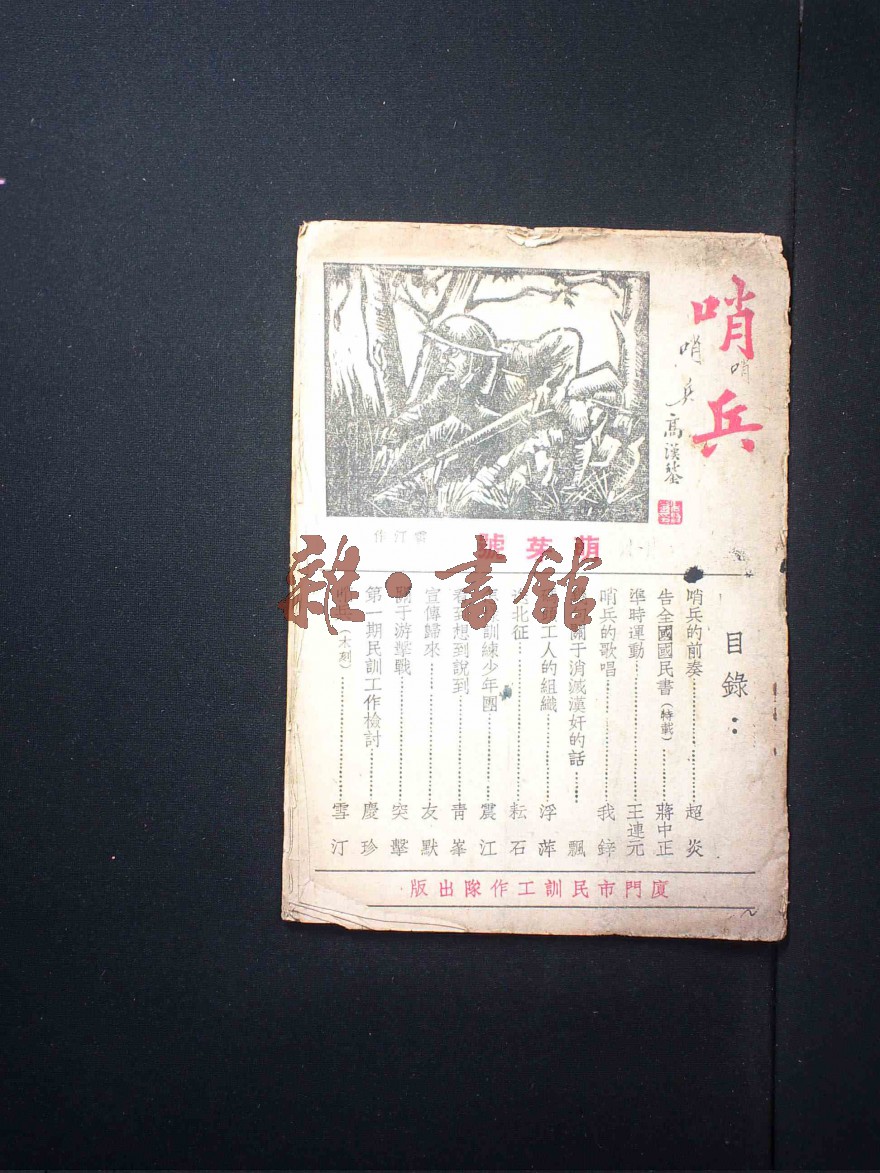 哨兵
哨兵
哨
高漢鍪
萌芽號
雪汀作
雜·書館
目錄：
哨兵的前奏……超炎
告全國國民書（特載）……蔣中正
準時運動……王連元
哨兵的歌唱……我鋅
關于消滅漢奸的話……飄
工人的組織……浮萍
北征……耘石
訓練少年團……震江
看到想到說到……青峯
宣傳歸來……友默
關于游擊戰……突擊
第一期民訓工作檢討……慶珍
哨兵（木刻）……雪汀
廈門市民訓工作隊出版